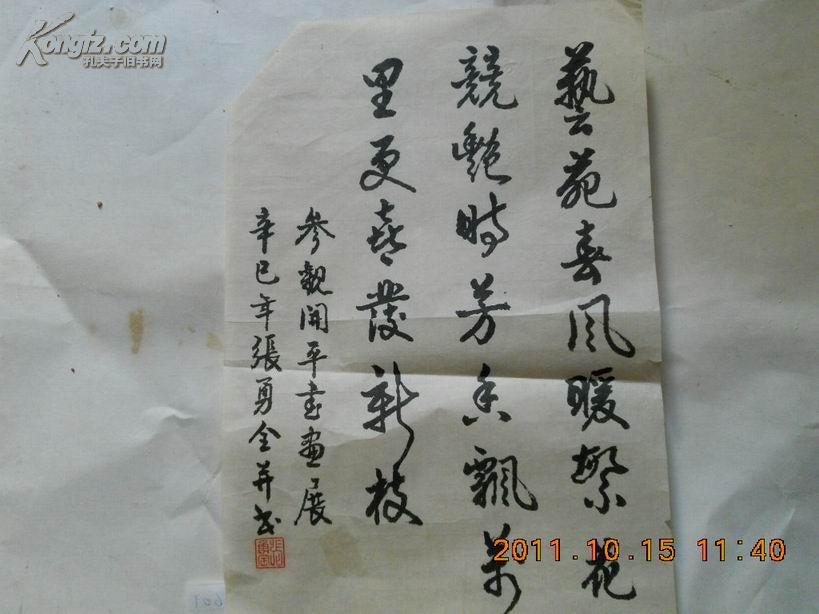 藝苑春風暖繁花
競艷時芳香飄萬
里更喜發新枝
參觀開平書畫展
辛巳年張勇全并書
Kongfz.com
孔夫子旧书网
2011.10.15 11:40